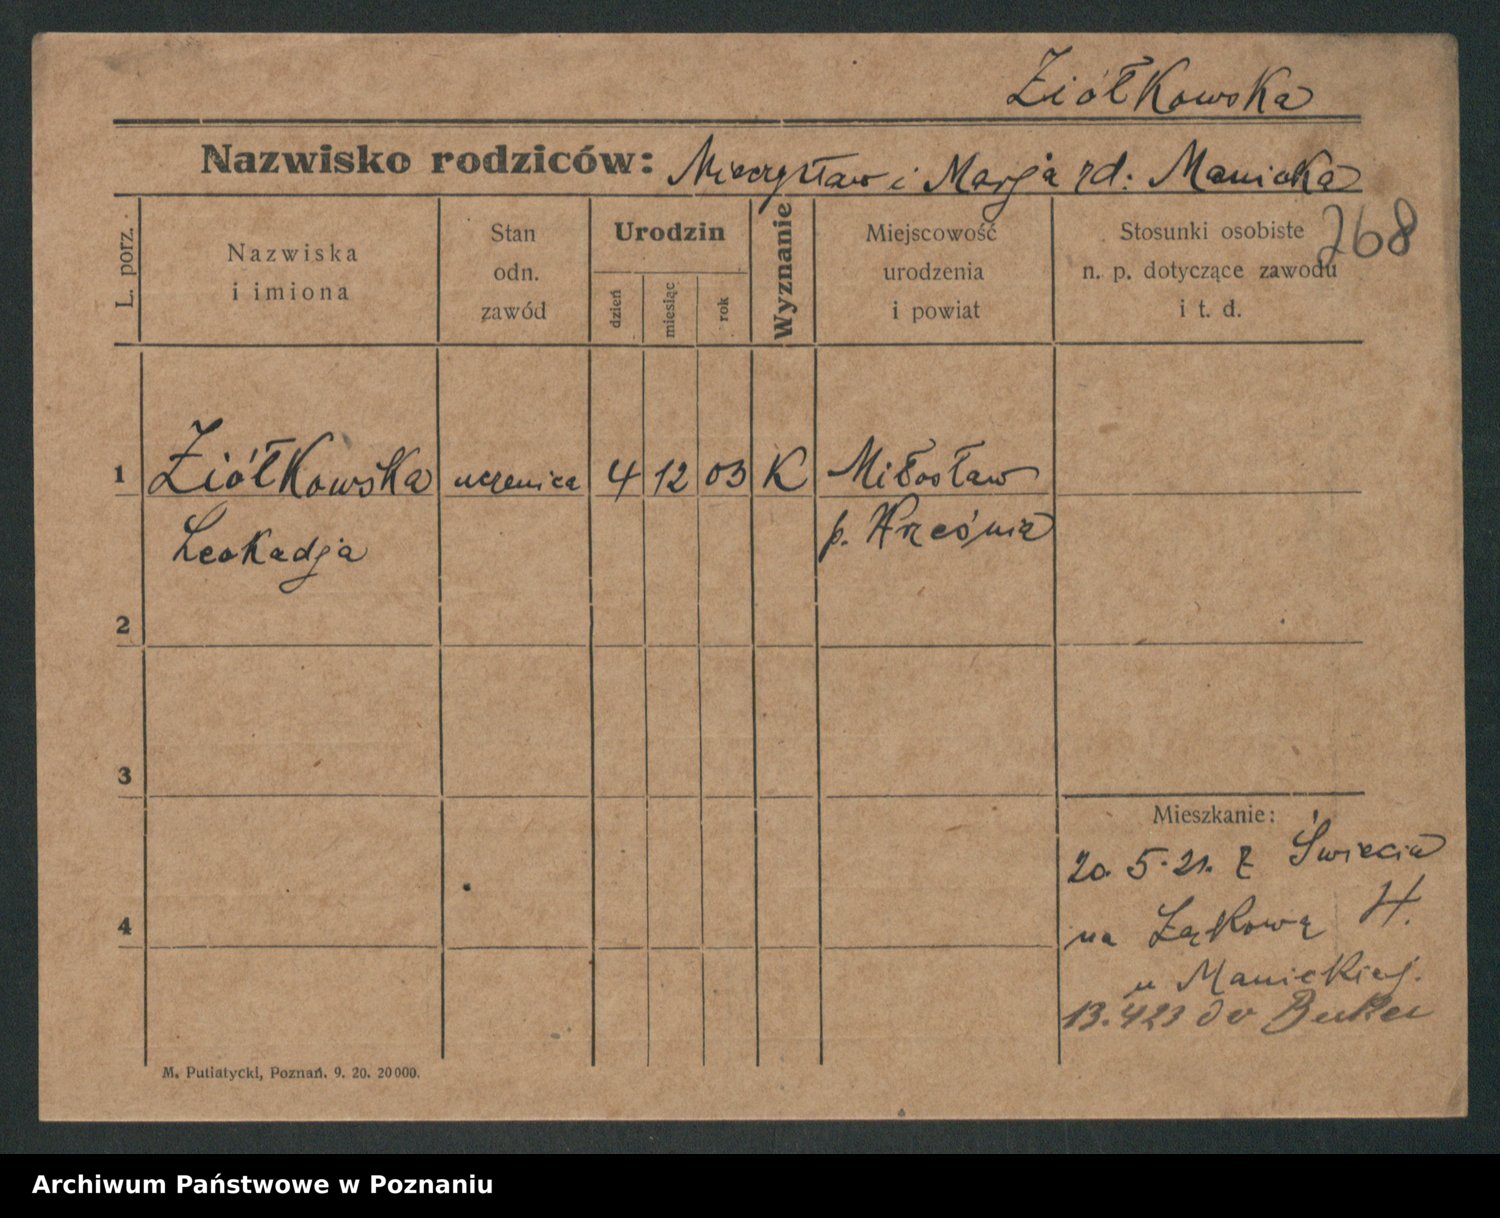 Ziółkowska
Nazwisko rodziców: Mieczysław i Marja rd: Manicka
268
L. porz.
Nazwiska
i imiona
Stan
odn.
zawód
Urodzin
dzień
miesiąc
rok
Wyznanie
Miejscowość
urodzenia
i powiat
Stosunki osobiste
n. p. dotyczące zawodu
i t. d.
1 Ziółkowska uczenica 4 12 03 K Miłosław
Leokadja p. Września
2
3
Mieszkanie:
20. 5. 21. z Świecia
4
na Łąkową 4.
u Manickiej.
13.423 do
M. Putiatycki, Poznań. 9. 20. 20000.
Archiwum Państwowe w Poznaniu